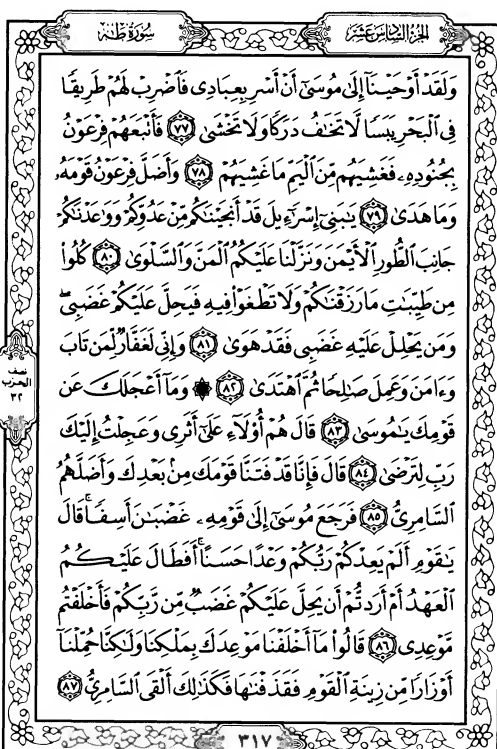 سُورَةُ طه
الجُزْءُ السَّادِسَ عَشَرَ
وَلَقَدْ أَوْحَيْنَآ إِلَىٰ مُوسَىٰٓ أَنْ أَسْرِ بِعِبَادِى فَٱضْرِبْ لَهُمْ طَرِيقًا
فِى ٱلْبَحْرِ يَبَسًا لَّا تَخَٰفُ دَرَكًا وَلَا تَخْشَىٰ ٧٧ فَأَتْبَعَهُمْ فِرْعَوْنُ
بِجُنُودِهِۦ فَغَشِيَهُم مِّنَ ٱلْيَمِّ مَا غَشِيَهُمْ ٧٨ وَأَضَلَّ فِرْعَوْنُ قَوْمَهُۥ
وَمَا هَدَىٰ ٧٩ يَٰبَنِىٓ إِسْرَٰٓءِيلَ قَدْ أَنجَيْنَٰكُم مِّنْ عَدُوِّكُمْ وَوَٰعَدْنَٰكُمْ
جَانِبَ ٱلطُّورِ ٱلْأَيْمَنَ وَنَزَّلْنَا عَلَيْكُمُ ٱلْمَنَّ وَٱلسَّلْوَىٰ ٨٠ كُلُوا۟
مِن طَيِّبَٰتِ مَا رَزَقْنَٰكُمْ وَلَا تَطْغَوْا۟ فِيهِ فَيَحِلَّ عَلَيْكُمْ غَضَبِى ۖ
وَمَن يَحْلِلْ عَلَيْهِ غَضَبِى فَقَدْ هَوَىٰ ٨١ وَإِنِّى لَغَفَّارٌ لِّمَن تَابَ
وَءَامَنَ وَعَمِلَ صَٰلِحًا ثُمَّ ٱهْتَدَىٰ ٨٢ ۞ وَمَآ أَعْجَلَكَ عَن
قَوْمِكَ يَٰمُوسَىٰ ٨٣ قَالَ هُمْ أُو۟لَآءِ عَلَىٰٓ أَثَرِى وَعَجِلْتُ إِلَيْكَ
رَبِّ لِتَرْضَىٰ ٨٤ قَالَ فَإِنَّا قَدْ فَتَنَّا قَوْمَكَ مِنۢ بَعْدِكَ وَأَضَلَّهُمُ
ٱلسَّامِرِىُّ ٨٥ فَرَجَعَ مُوسَىٰٓ إِلَىٰ قَوْمِهِۦ غَضْبَٰنَ أَسِفًا ۚ قَالَ
يَٰقَوْمِ أَلَمْ يَعِدْكُمْ رَبُّكُمْ وَعْدًا حَسَنًا ۚ أَفَطَالَ عَلَيْكُمُ
ٱلْعَهْدُ أَمْ أَرَدتُّمْ أَن يَحِلَّ عَلَيْكُمْ غَضَبٌ مِّن رَّبِّكُمْ فَأَخْلَفْتُم
مَّوْعِدِى ٨٦ قَالُوا۟ مَآ أَخْلَفْنَا مَوْعِدَكَ بِمَلْكِنَا وَلَٰكِنَّا حُمِّلْنَآ
أَوْزَارًا مِّن زِينَةِ ٱلْقَوْمِ فَقَذَفْنَٰهَا فَكَذَٰلِكَ أَلْقَى ٱلسَّامِرِىُّ ٨٧
نصف
الحزب
٣٢
٣١٧